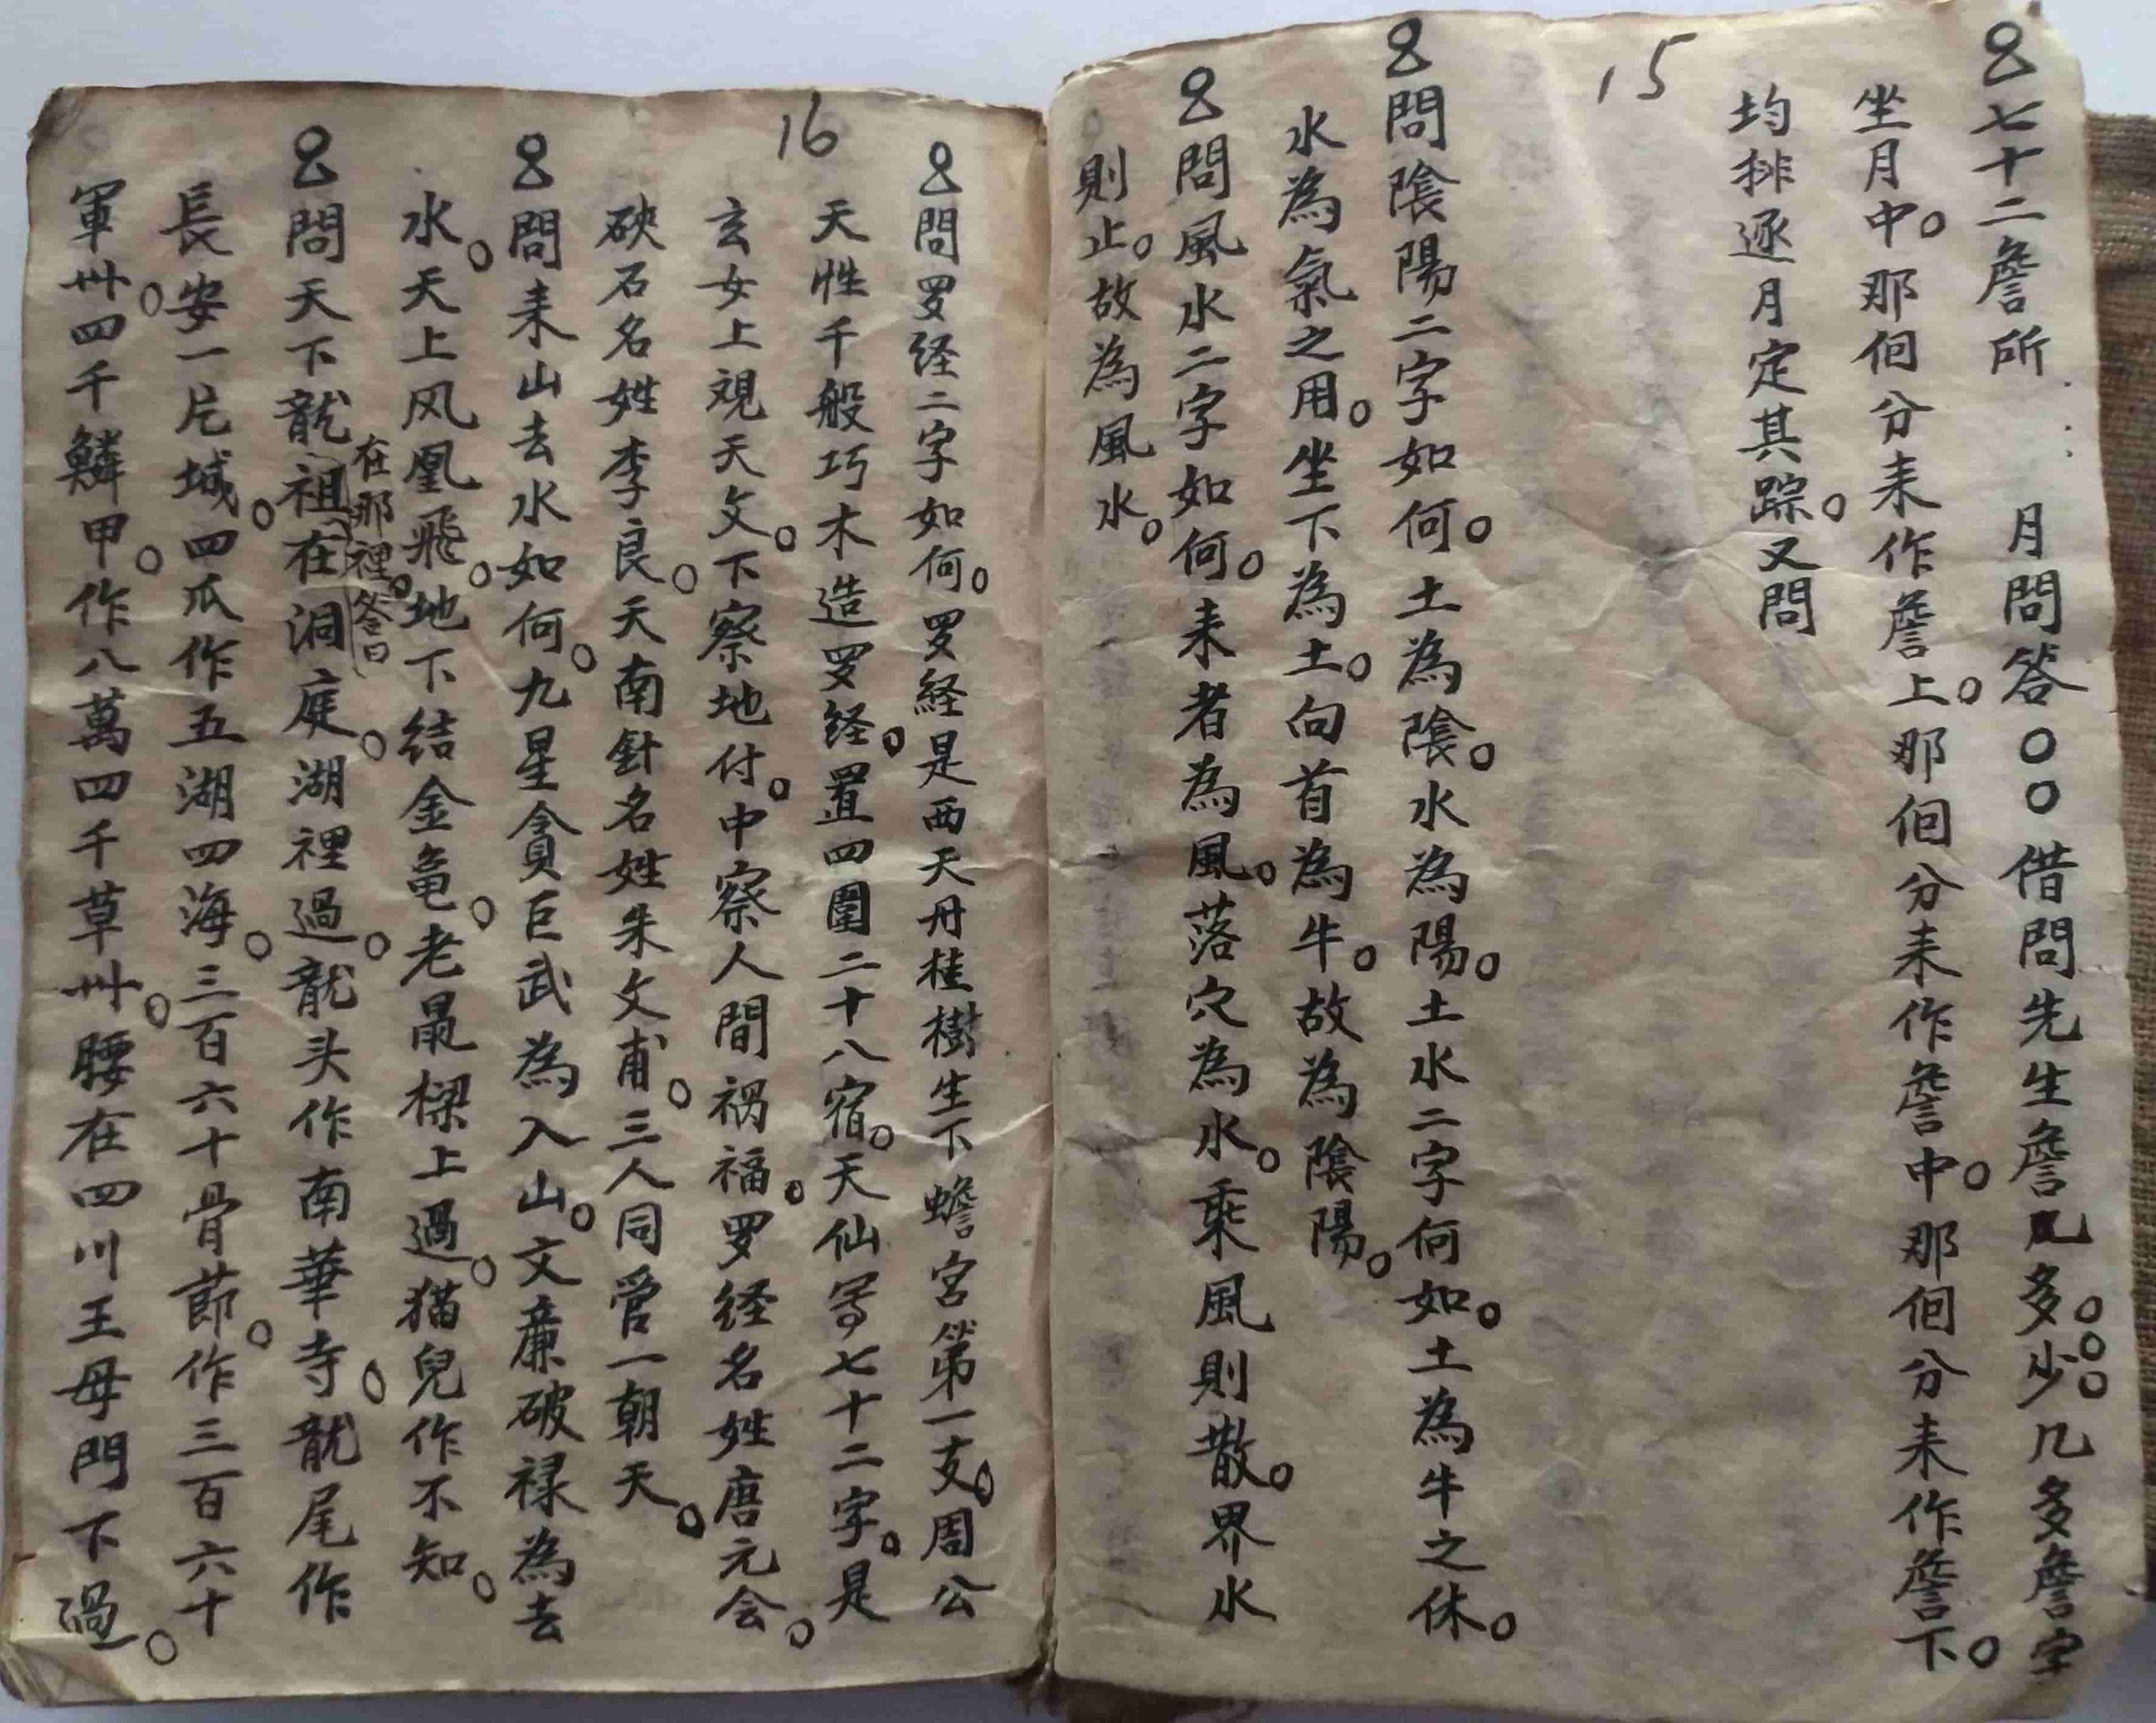 七十二詹所 月問答〇〇借問先生詹几多。多少。。几多詹字
坐月中。那佪分耒作詹上。那佪分耒作詹中。那佪分耒作詹下。
均排逐月定其踪。又問
15
問陰陽二字如何。土為陰。水為陽。土水二字何如。土為牛之休。
水為氣之用。坐下為土。向首為牛。故為陰陽。
問風水二字如何。耒者為風。落穴為水。乘風則散。界水
則止。故為風水。
問罗経二字如何。罗経是西天丹桂樹生下蟾宮第一支。周公
天性千般巧木造罗経。置四圍二十八宿。天仙寫七十二字。是
16
玄女上視天文。下察地付。中察人間禍福。罗経名姓唐元会。
砄石名姓李良。天南針名姓朱文甫。三人同管一朝天。
問耒山去水如何。九星貪巨武為入山。文廉破禄為去
水。天上风凰飛。地下结金龟。老鼠樑上過。猫兒作不知。
在那裡。答曰
問天下龍祖在洞庭。湖裡過。龍头作南華寺。龍尾作
長安一片城。四爪作五湖四海。三百六十骨莭。作三百六十
軍州。四千鱗甲。作八萬四千草卅。腰在四川王母門下過。